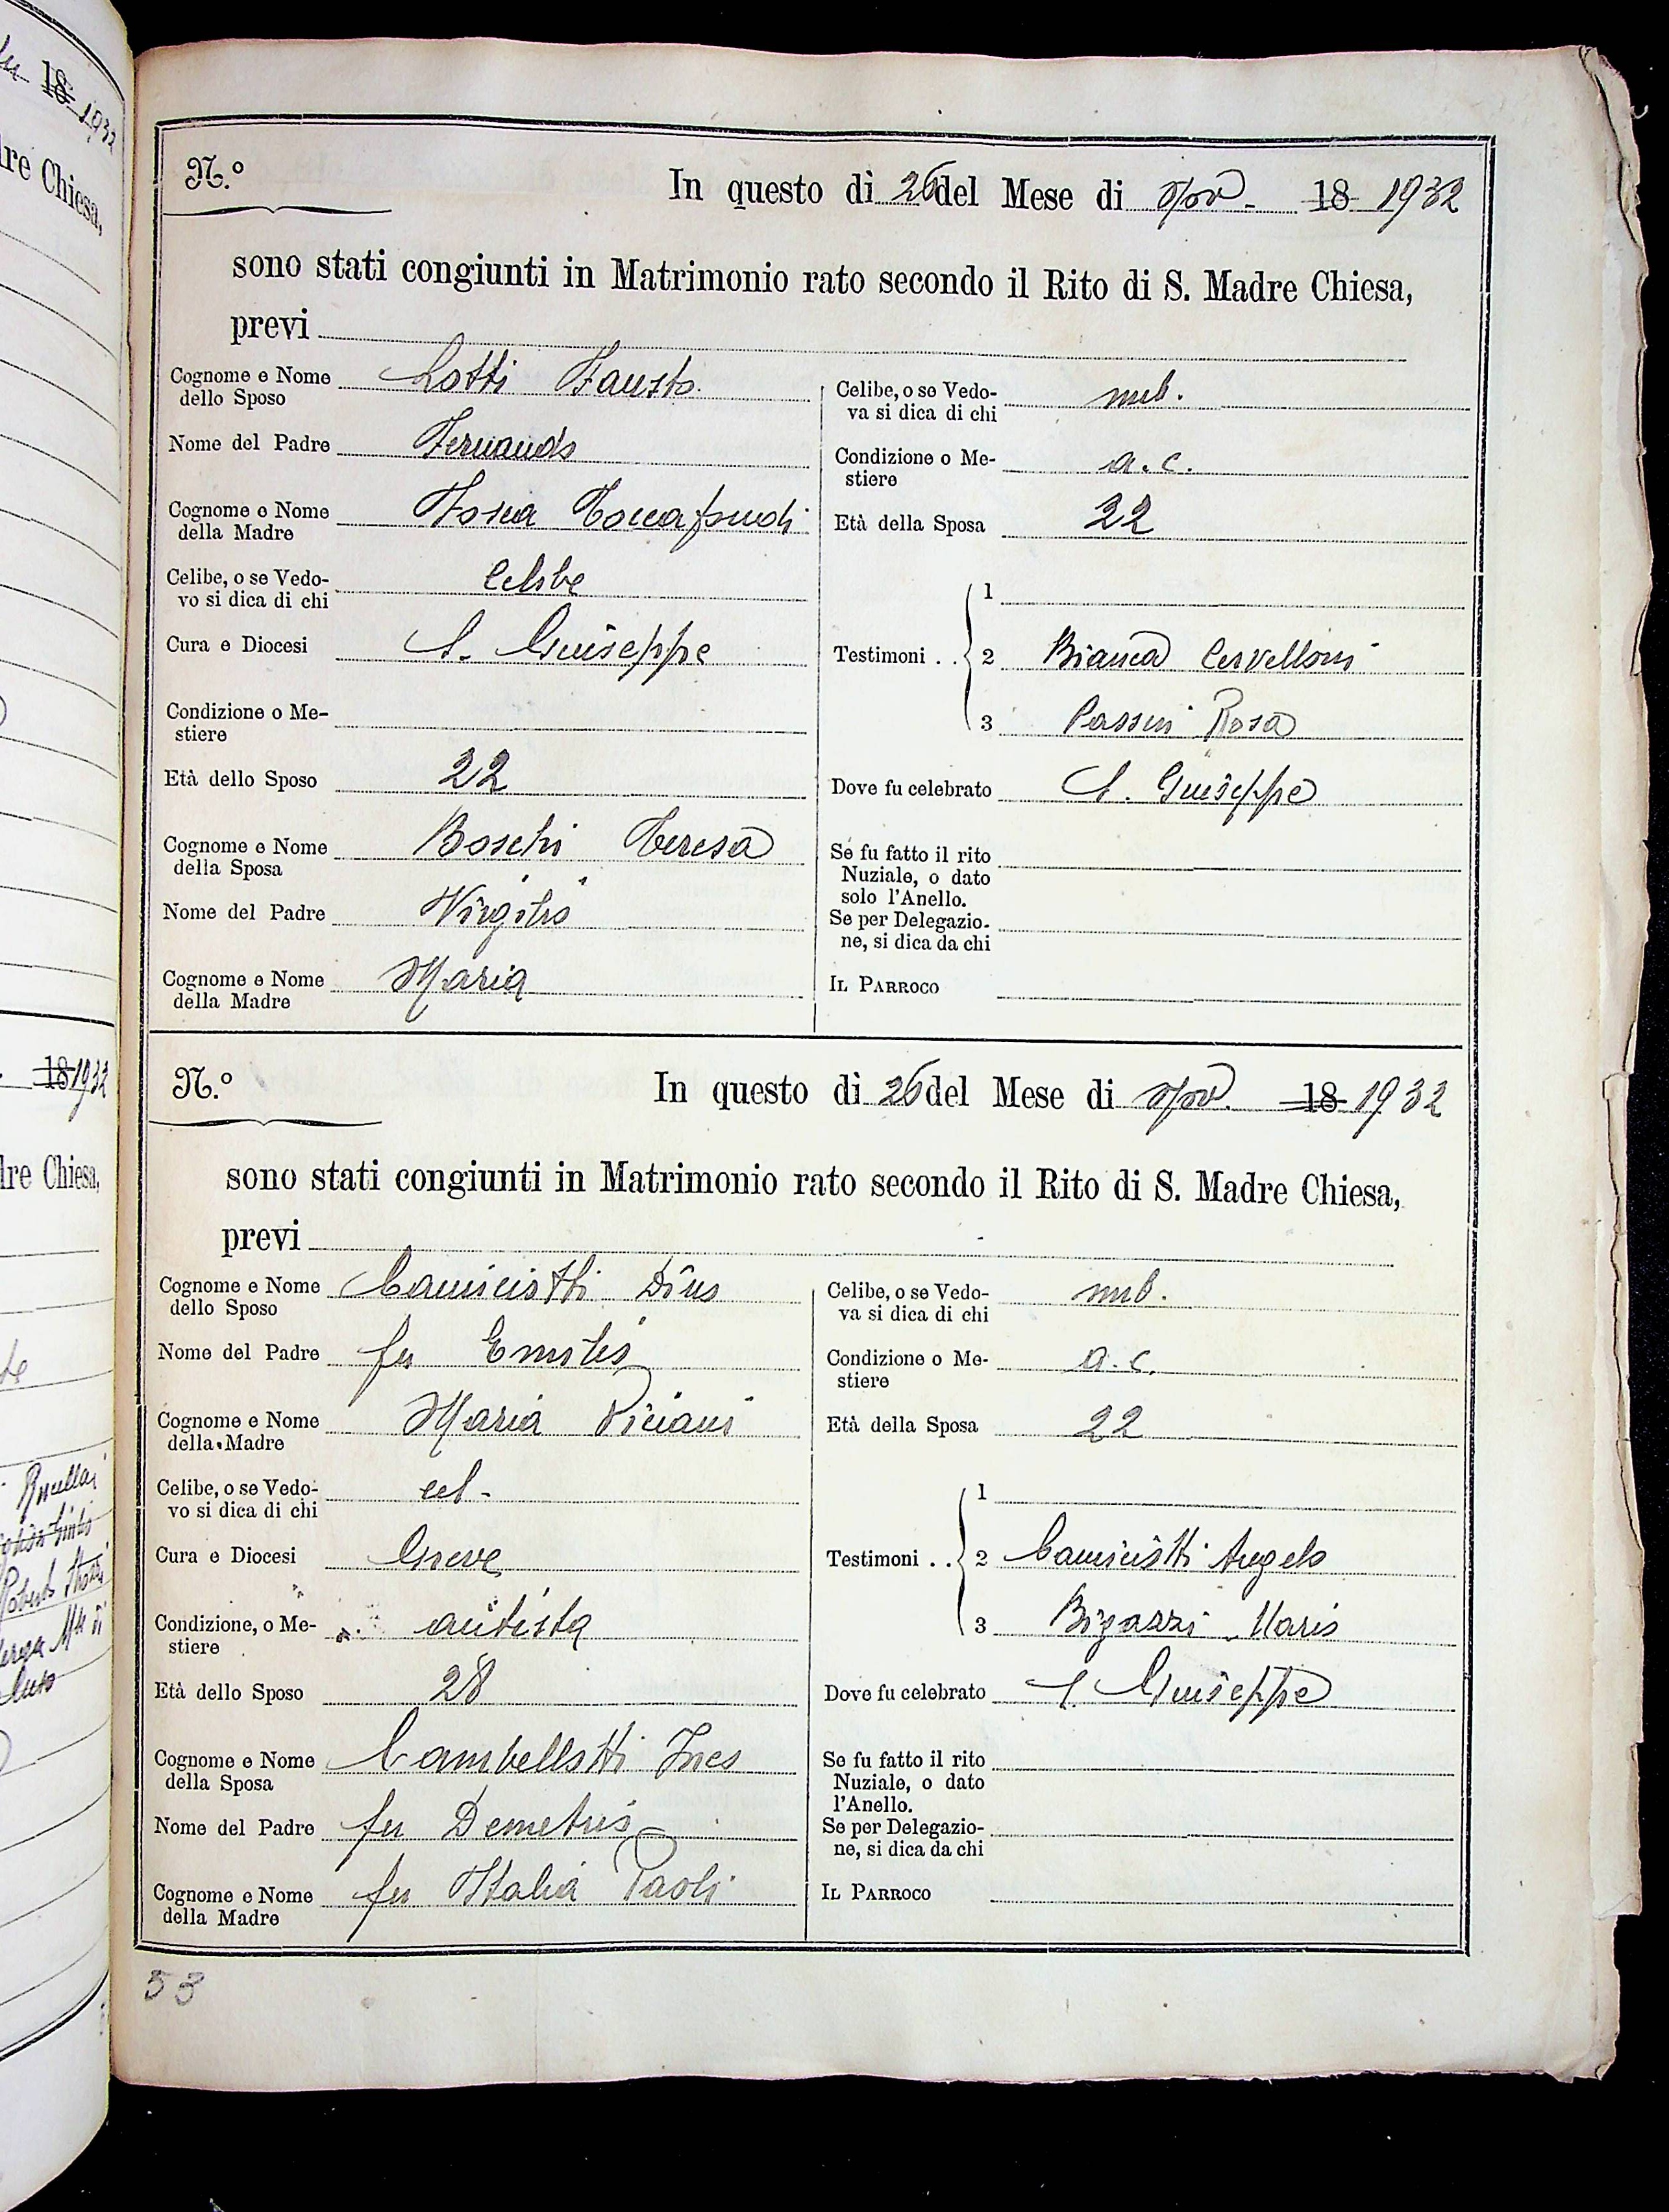 N.º
In questo dì 26 del Mese di Nov. 18 1932
sono stati congiunti in Matrimonio rato secondo il Rito di S. Madre Chiesa,
previ
Cognome e Nome dello Sposo Lotti Fausto
Nome del Padre Fernando
Cognome e Nome della Madre Tosca Toccafondi
Celibe, o se Vedovo si dica di chi Celibe
Cura e Diocesi S. Giuseppe
Condizione o Mestiere
Età dello Sposo 22
Cognome e Nome della Sposa Boschi Teresa
Nome del Padre Virgilio
Cognome e Nome della Madre Maria
Celibe, o se Vedova si dica di chi nub.
Condizione o Mestiere a. c.
Età della Sposa 22
Testimoni . . 1
2 Bianca Cervelloni
3 Rosa
Dove fu celebrato S. Giuseppe
Se fu fatto il rito Nuziale, o dato solo l'Anello.
Se per Delegazione, si dica da chi
IL PARROCO
N.º
In questo dì 26 del Mese di Nov. 18 1932
sono stati congiunti in Matrimonio rato secondo il Rito di S. Madre Chiesa,
previ
Cognome e Nome dello Sposo Camiciotti Dino
Nome del Padre fu Emilio
Cognome e Nome della Madre Maria Viciani
Celibe, o se Vedovo si dica di chi cel.
Cura e Diocesi Greve
Condizione, o Mestiere autista
Età dello Sposo 28
Cognome e Nome della Sposa Cambellotti Ines
Nome del Padre fu Demetrio
Cognome e Nome della Madre fu Italia Paoli
Celibe, o se Vedova si dica di chi nub.
Condizione o Mestiere a. c.
Età della Sposa 22
Testimoni . . 1
2 Camiciotti Angelo
3 Bigazzi Mario
Dove fu celebrato S. Giuseppe
Se fu fatto il rito Nuziale, o dato l'Anello.
Se per Delegazione, si dica da chi
IL PARROCO
53